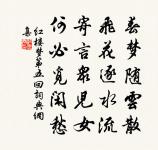 春夢隨雲散
飛花逐水流
寄言衆兒女
何必覓閑愁
紅樓夢第五回詞典網
集